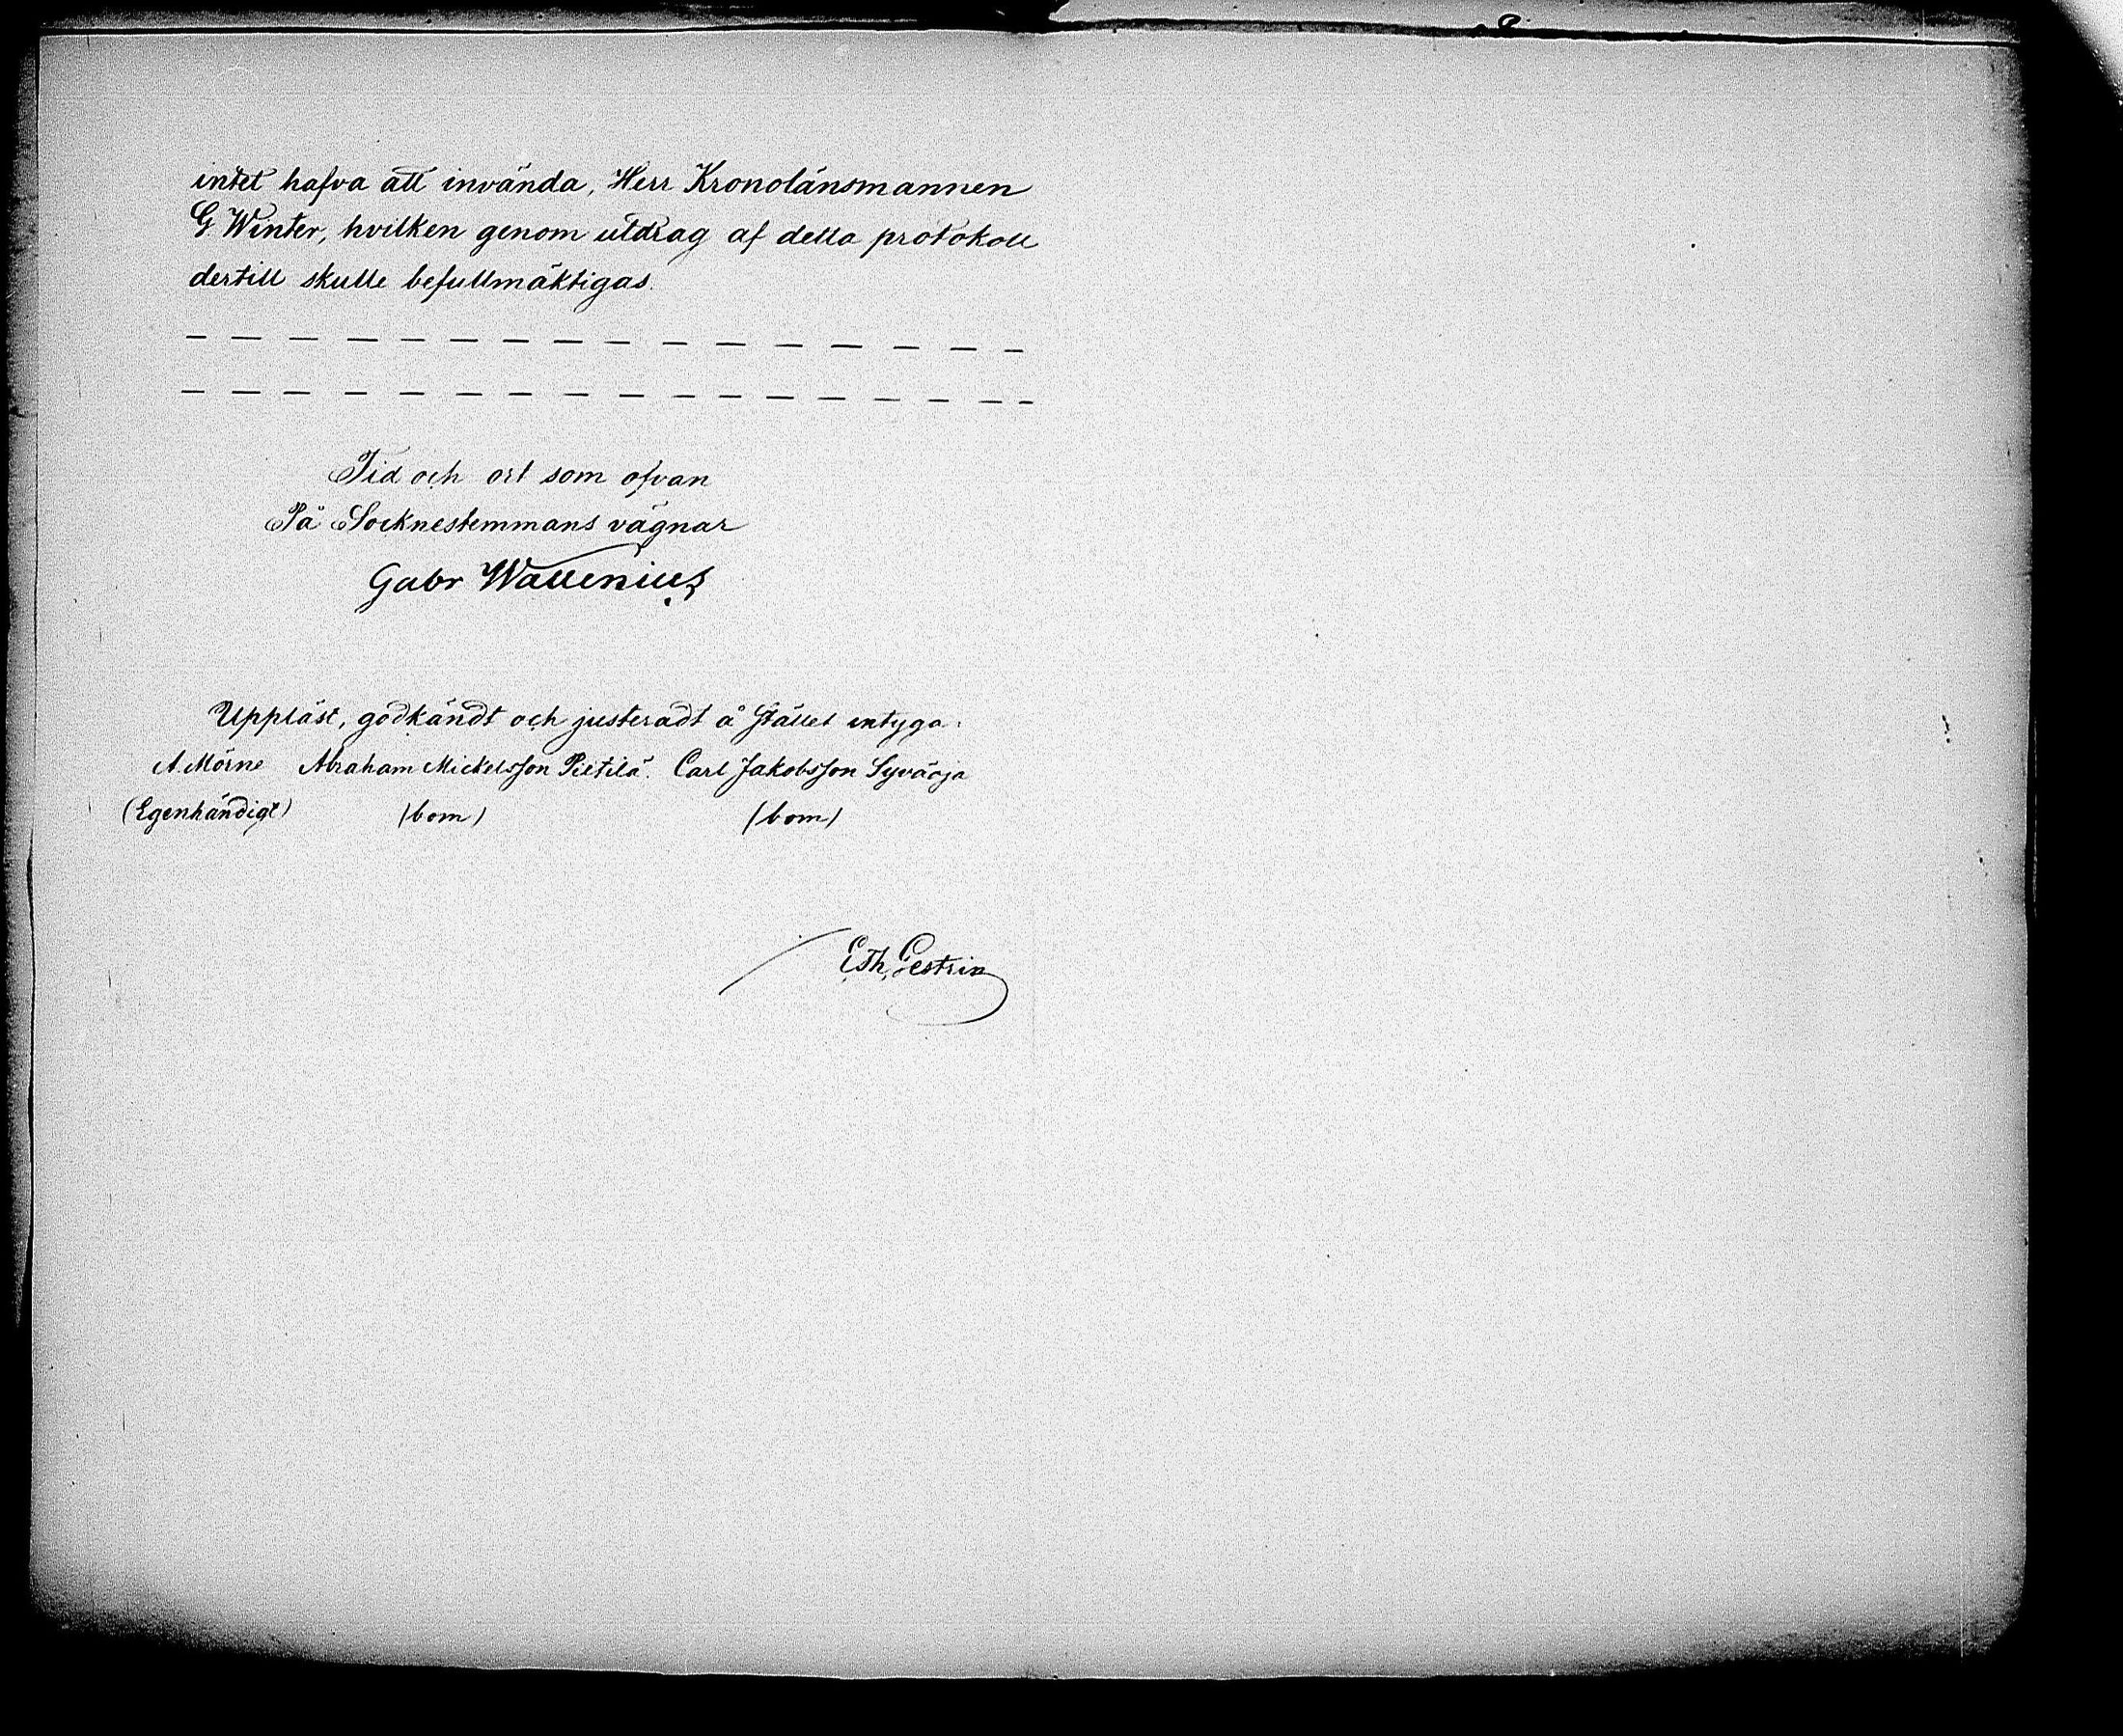 intet hafva att invända, Herr Kronolänsmannen
G. Winter, hvilken genom utdrag af detta protokoll
dertill skulle befullmäktigas.
Tid och ort som ofvan
På Socknestemmans vägnar
Gabr Wallenius
Uppläst, godkändt och justeradt å stället intyga:
A. Mörne Abraham Mickelsson Pietilä. Carl Jakobsson Syväoja
(Egenhändigt) (bom) (bom)
E. Th. Gestrin